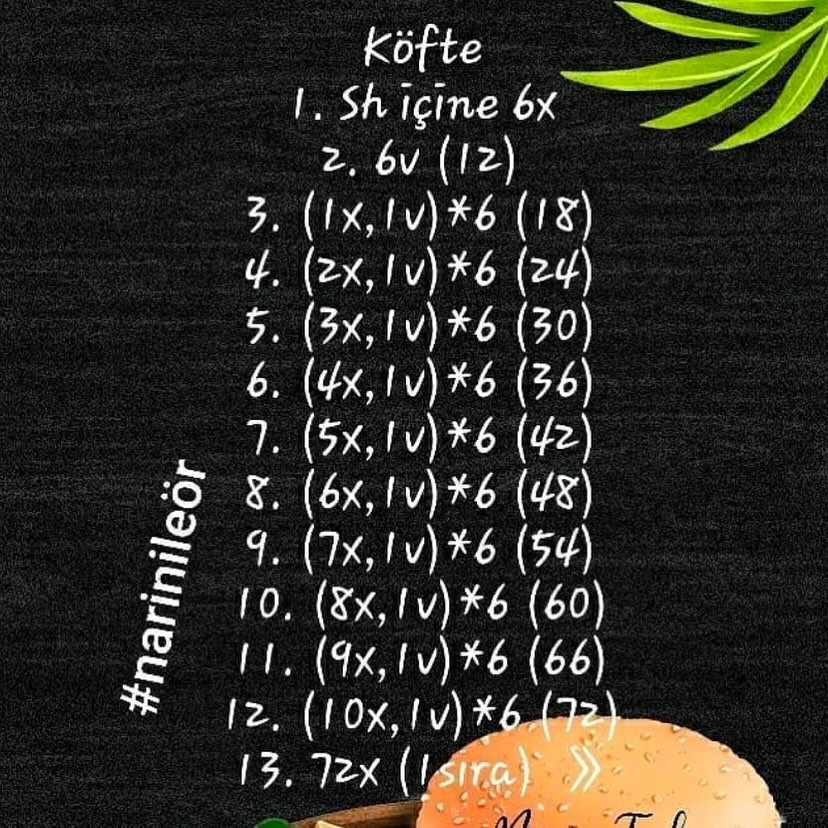 Köfte
1. Sh içine 6x
2. 6v (12)
3. (1x,1v)*6 (18)
4. (2x,1v)*6 (24)
5. (3x,1v)*6 (30)
6. (4x,1v)*6 (36)
7. (5x,1v)*6 (42)
8. (6x,1v)*6 (48)
9. (7x,1v)*6 (54)
10. (8x,1v)*6 (60)
11. (9x,1v)*6 (66)
12. (10x,1v)*6 (72)
13. 72x (1sıra) »
#narinileör